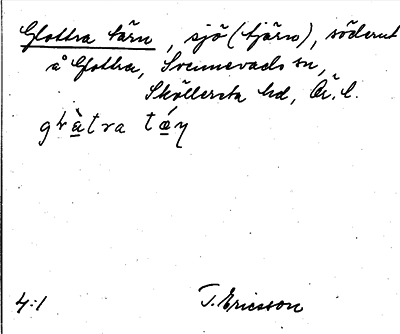 Glottra tärn, sjö (tjärn), söderut
å Glottra, Svennevads sn,
Sköllersta hd, Ör. l.
4:1 T. Ericsson